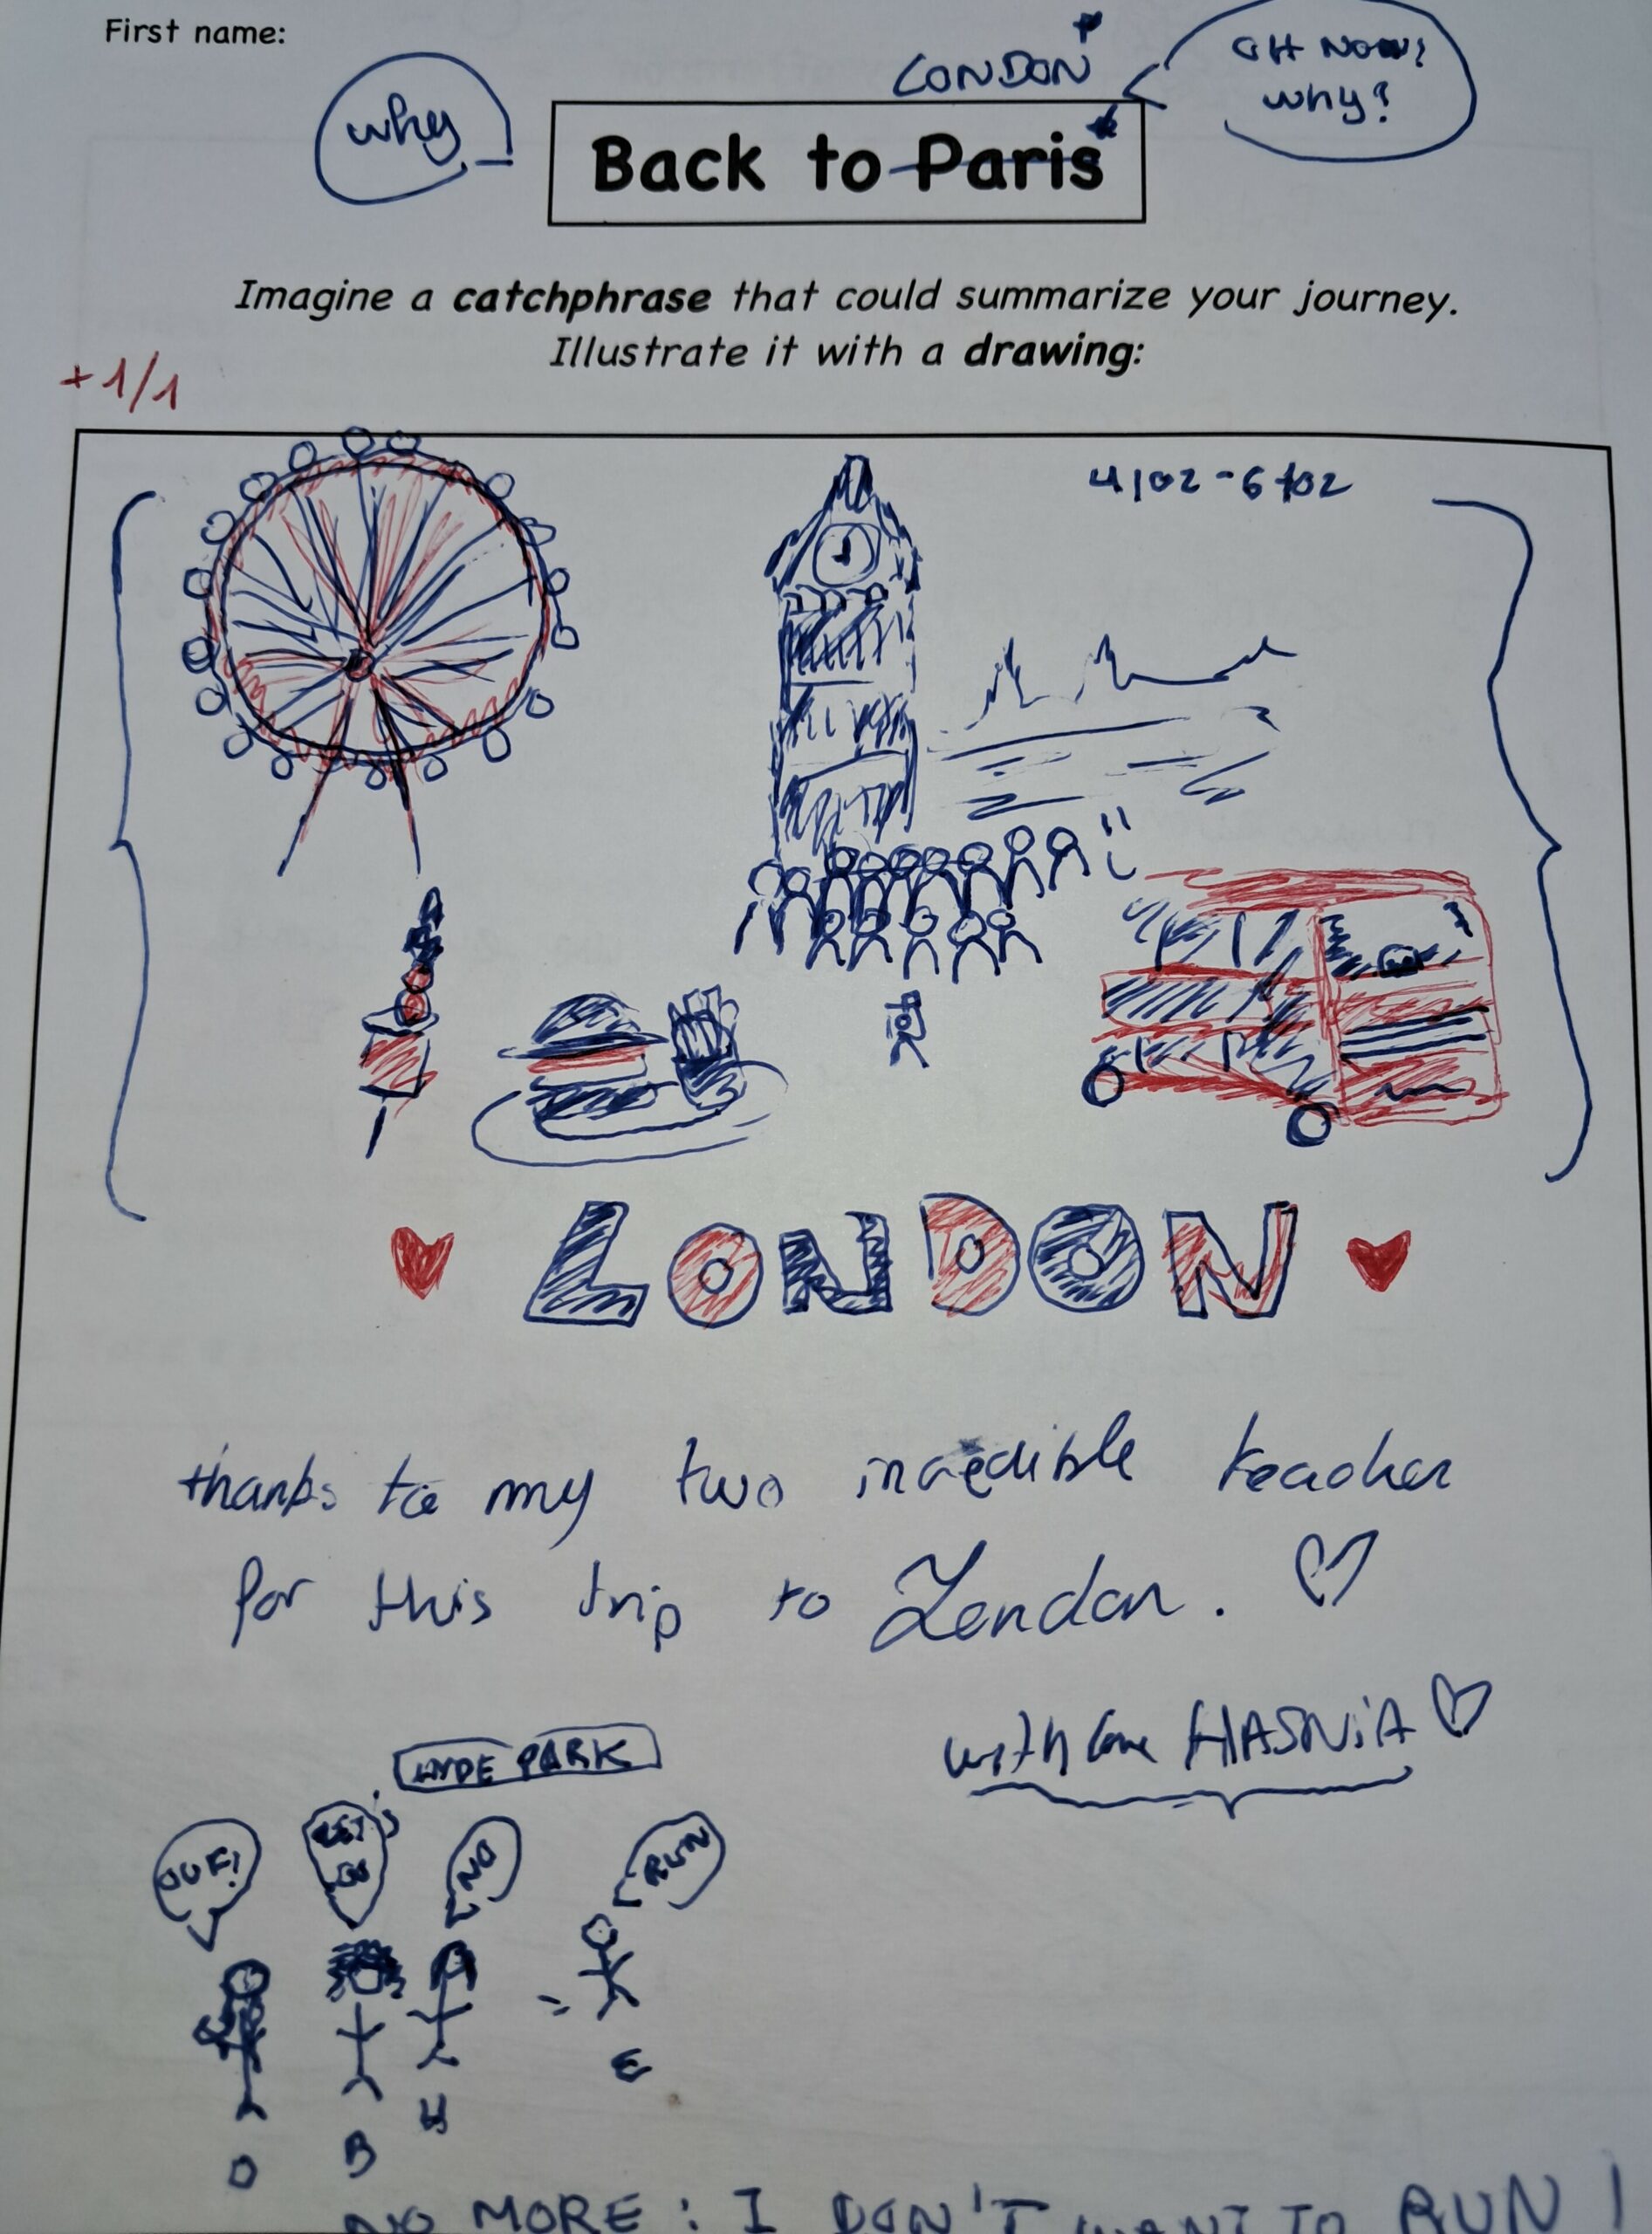 First name:
why
LONDON
OH NOOW!
why?
Back to Paris
Imagine a catchphrase that could summarize your journey.
Illustrate it with a drawing:
+1/1
4/02-6/02
LONDON
thanks to my two incredible teacher
for this trip to London.
with love HASNiA
HYDE PARK
OUF!
LET'S
GO
NO
RUN
D
B
H
E
NO MORE: I DON'T WANT TO RUN!